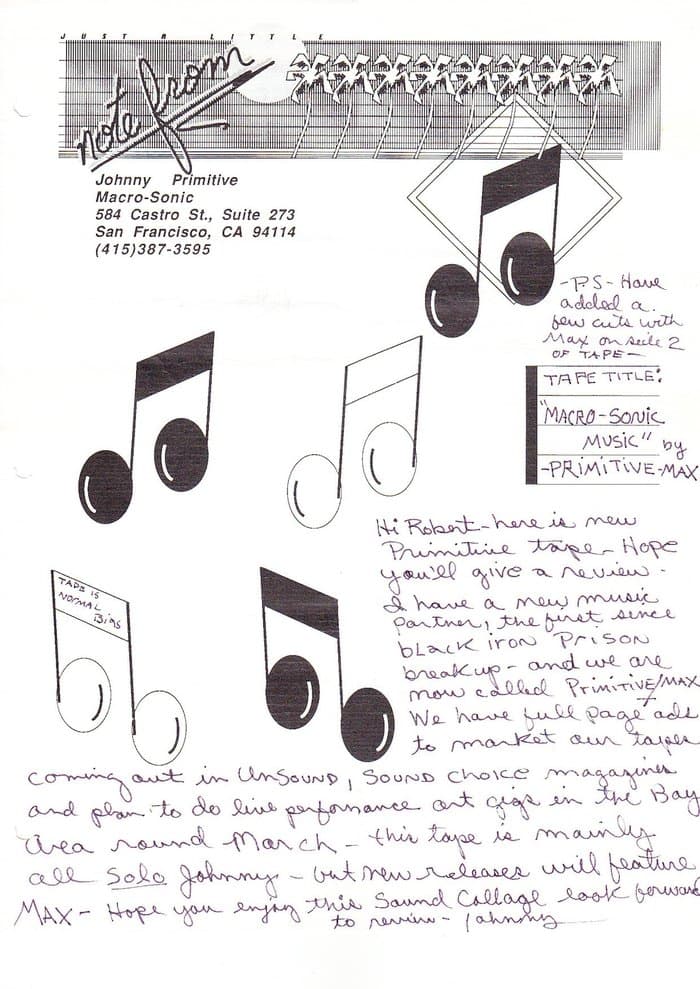 JUST A LITTLE
note from
Johnny Primitive
Macro-Sonic
584 Castro St., Suite 273
San Francisco, CA 94114
(415)387-3595
-P.S- Have
added a
few cuts with
Max on side 2
OF TAPE-
TAPE TITLE:
"MACRO-SONIC
MUSIC" by
-PRIMITIVE-MAX
TAPE IS
NORMAL
Bias
Hi Robert-here is new
Primitive tape- Hope
you'll give a review-
I have a new music
partner, the first since
bLACK iron PRISON
breakup- and we are
now called PRIMITIVE/MAX
We have full page ads
to market our tapes
coming out in UnSOUND, SOUND CHOICE magazines
and plan to do live performance art gigs in the Bay
Area round March- this tape is mainly
all Solo Johnny- but new releases will feature
MAX- Hope you enjoy this Sound Collage look forward
to review- Johnny